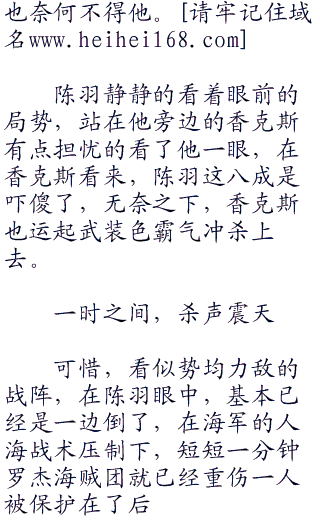 也奈何不得他。[请牢记住域
名www.heihei168.com]
陈羽静静的看着眼前的
局势，站在他旁边的香克斯
有点担忧的看了他一眼，在
香克斯看来，陈羽这八成是
吓傻了，无奈之下，香克斯
也运起武装色霸气冲杀上
去。
一时之间，杀声震天
可惜，看似势均力敌的
战阵，在陈羽眼中，基本已
经是一边倒了，在海军的人
海战术压制下，短短一分钟
罗杰海贼团就已经重伤一人
被保护在了后